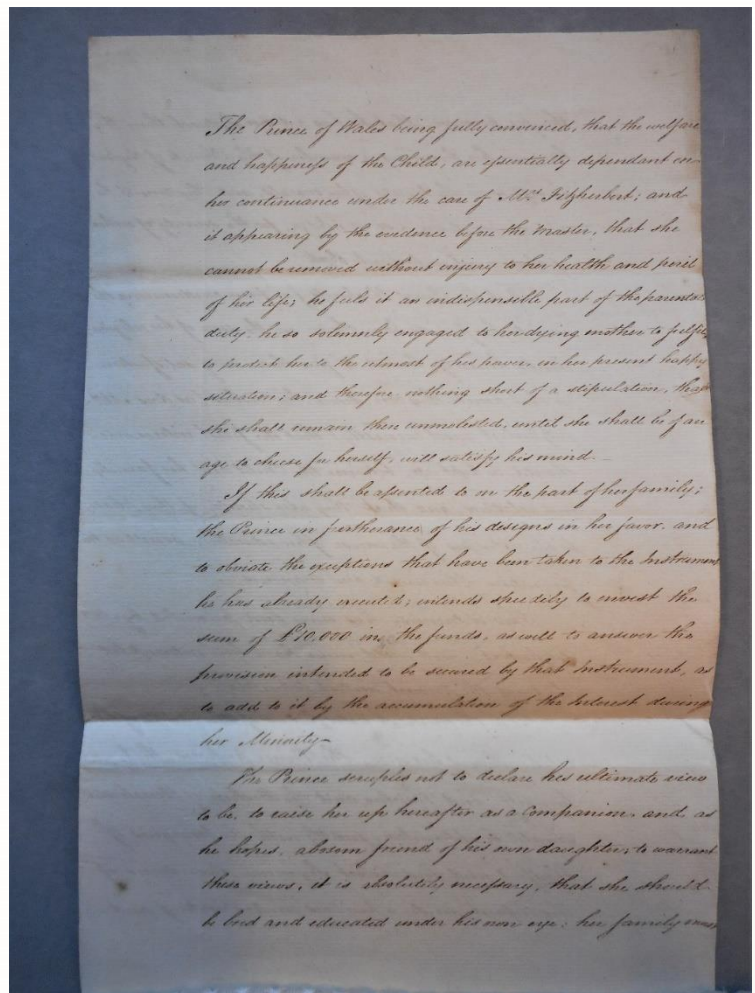 The Prince of Wales being fully convinced, that the welfare
and happiness of the Child, are essentially dependant on
her continuance under the care of Mrs. Fitzherbert; and
it appearing by the evidence before the Master, that she
cannot be removed without injury to her health and peril
of her life; he feels it an indispensible part of the parental
duty he so solemnly engaged to her dying mother to fulfil,
to protect her to the utmost of his power, in her present happy
situation; and therefore nothing short of a stipulation, that
she shall remain there unmolested, until she shall be of an
age to choose for herself, will satisfy his mind.
If this shall be assented to on the part of her family;
the Prince in furtherance of his designs in her favor, and
to obviate the exceptions that have been taken to the Instrument
he has already executed; intends speedily to invest the
sum of £10,000 in the funds, as well to answer the
provision intended to be secured by that Instrument, as
to add to it by the accumulation of the Interest during
her Minority—
The Prince scruples not to declare his ultimate view
to be, to raise her up hereafter as a companion, and as
he hopes, a bosom friend of his own daughter; to warrant
these views, it is absolutely necessary, that she should
be bred and educated under his own eye: her family must